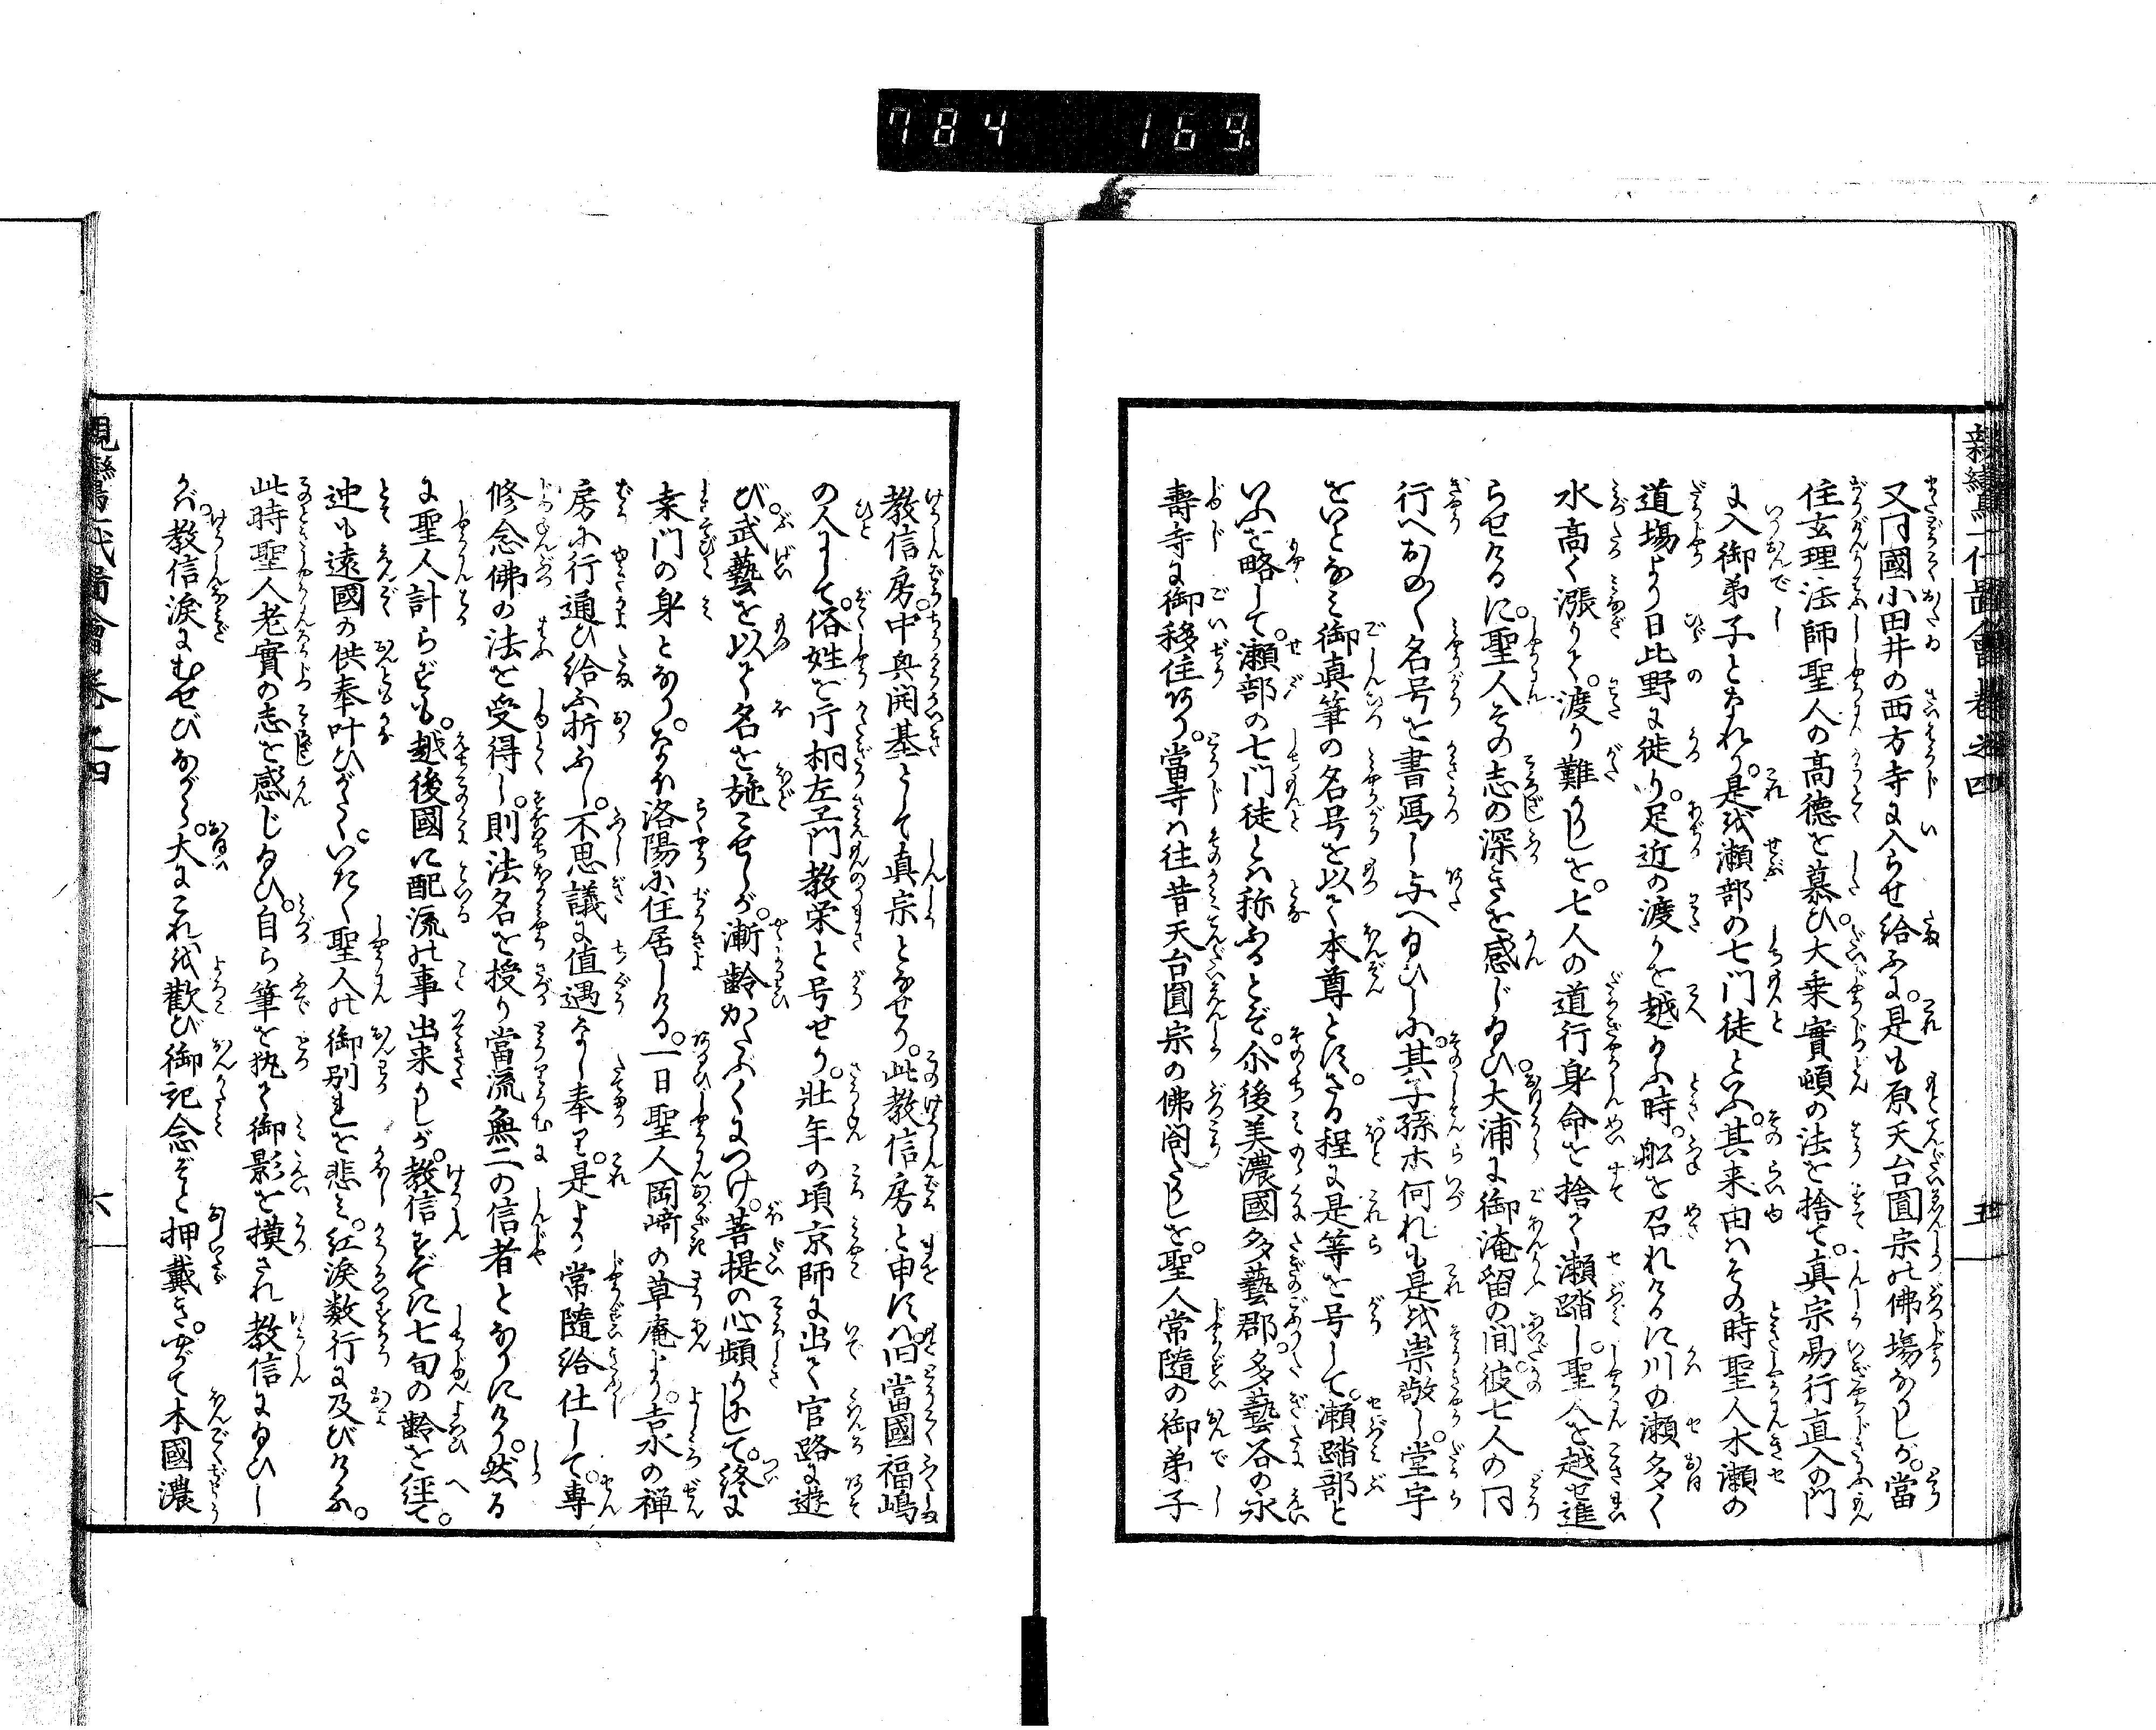 784 169
親鸞一代圖會 卷之四 五
又同國小田井の西方寺に入らせ給ふに。是も原天台圓宗の佛場なりしが。當
住玄理法師聖人の高德を慕ひ。大乗實頓の法を捨て。真宗易行直入の門
に入御弟子となれり。是を瀬部の七門徒といふ。其来由はその時聖人木瀬の
道場より日比野に徙り。足近の渡りを越給ふ時。船を召れけるに川の瀬多く
水高く漲りて。渡り難かりしを。七人の道行身命を捨て瀬踏し。聖人を越進
らせけるに。聖人その志の深きを感じ給ひ。大浦に御淹留の间。彼七人の同
行へおの〳〵名号を書寫し与へ給ひしに。其子孫木何れも是を崇敬し。堂宇
をいとなみ御真筆の名号を以て本尊とす。さる程に是等を号して。瀬踏部と
いふを略して。瀬部の七門徒とは称ふるとぞ。尒後美濃國多藝郡。多藝谷の永
壽寺に御移住あり。當寺は往昔天台圓宗の佛閣たりしを。聖人常隨の御弟子
教信房。中興開基として真宗となせり。此教信房と申すは。旧當國福嶋
の人にして。俗姓を片桐左エ門教栄と号せり。壯年の頃京師に出て官路に遊
び。武藝を以て名を施こせしが。漸齢かたぶくにつけ。菩提の心頻りにして。終に
桒門の身となり。なほ洛陽に住居しける。一日聖人岡﨑の草庵より。吉水の禅
房に行通ひ給ふ折ふし。不思議に値遇なし奉り。是より常隨給仕して。專
修念佛の法を受得し。則法名を授り當流無二の信者となりにけり。然る
に聖人計らずも。越後國に配流の事出来りしが。教信すでに七旬の齢を経て。
迚も遠國の供奉叶ひがたく。いたく聖人の御別れを悲み。紅涙数行に及びけり。
此時聖人老實の志を感じ給ひ。自ら筆を执て御影を摸され教信に給ひし
かば。教信涙にむせびながら。大にこれを歡び御記念ぞと押戴き。やがて本國濃
親鸞一代圖會卷之四 六